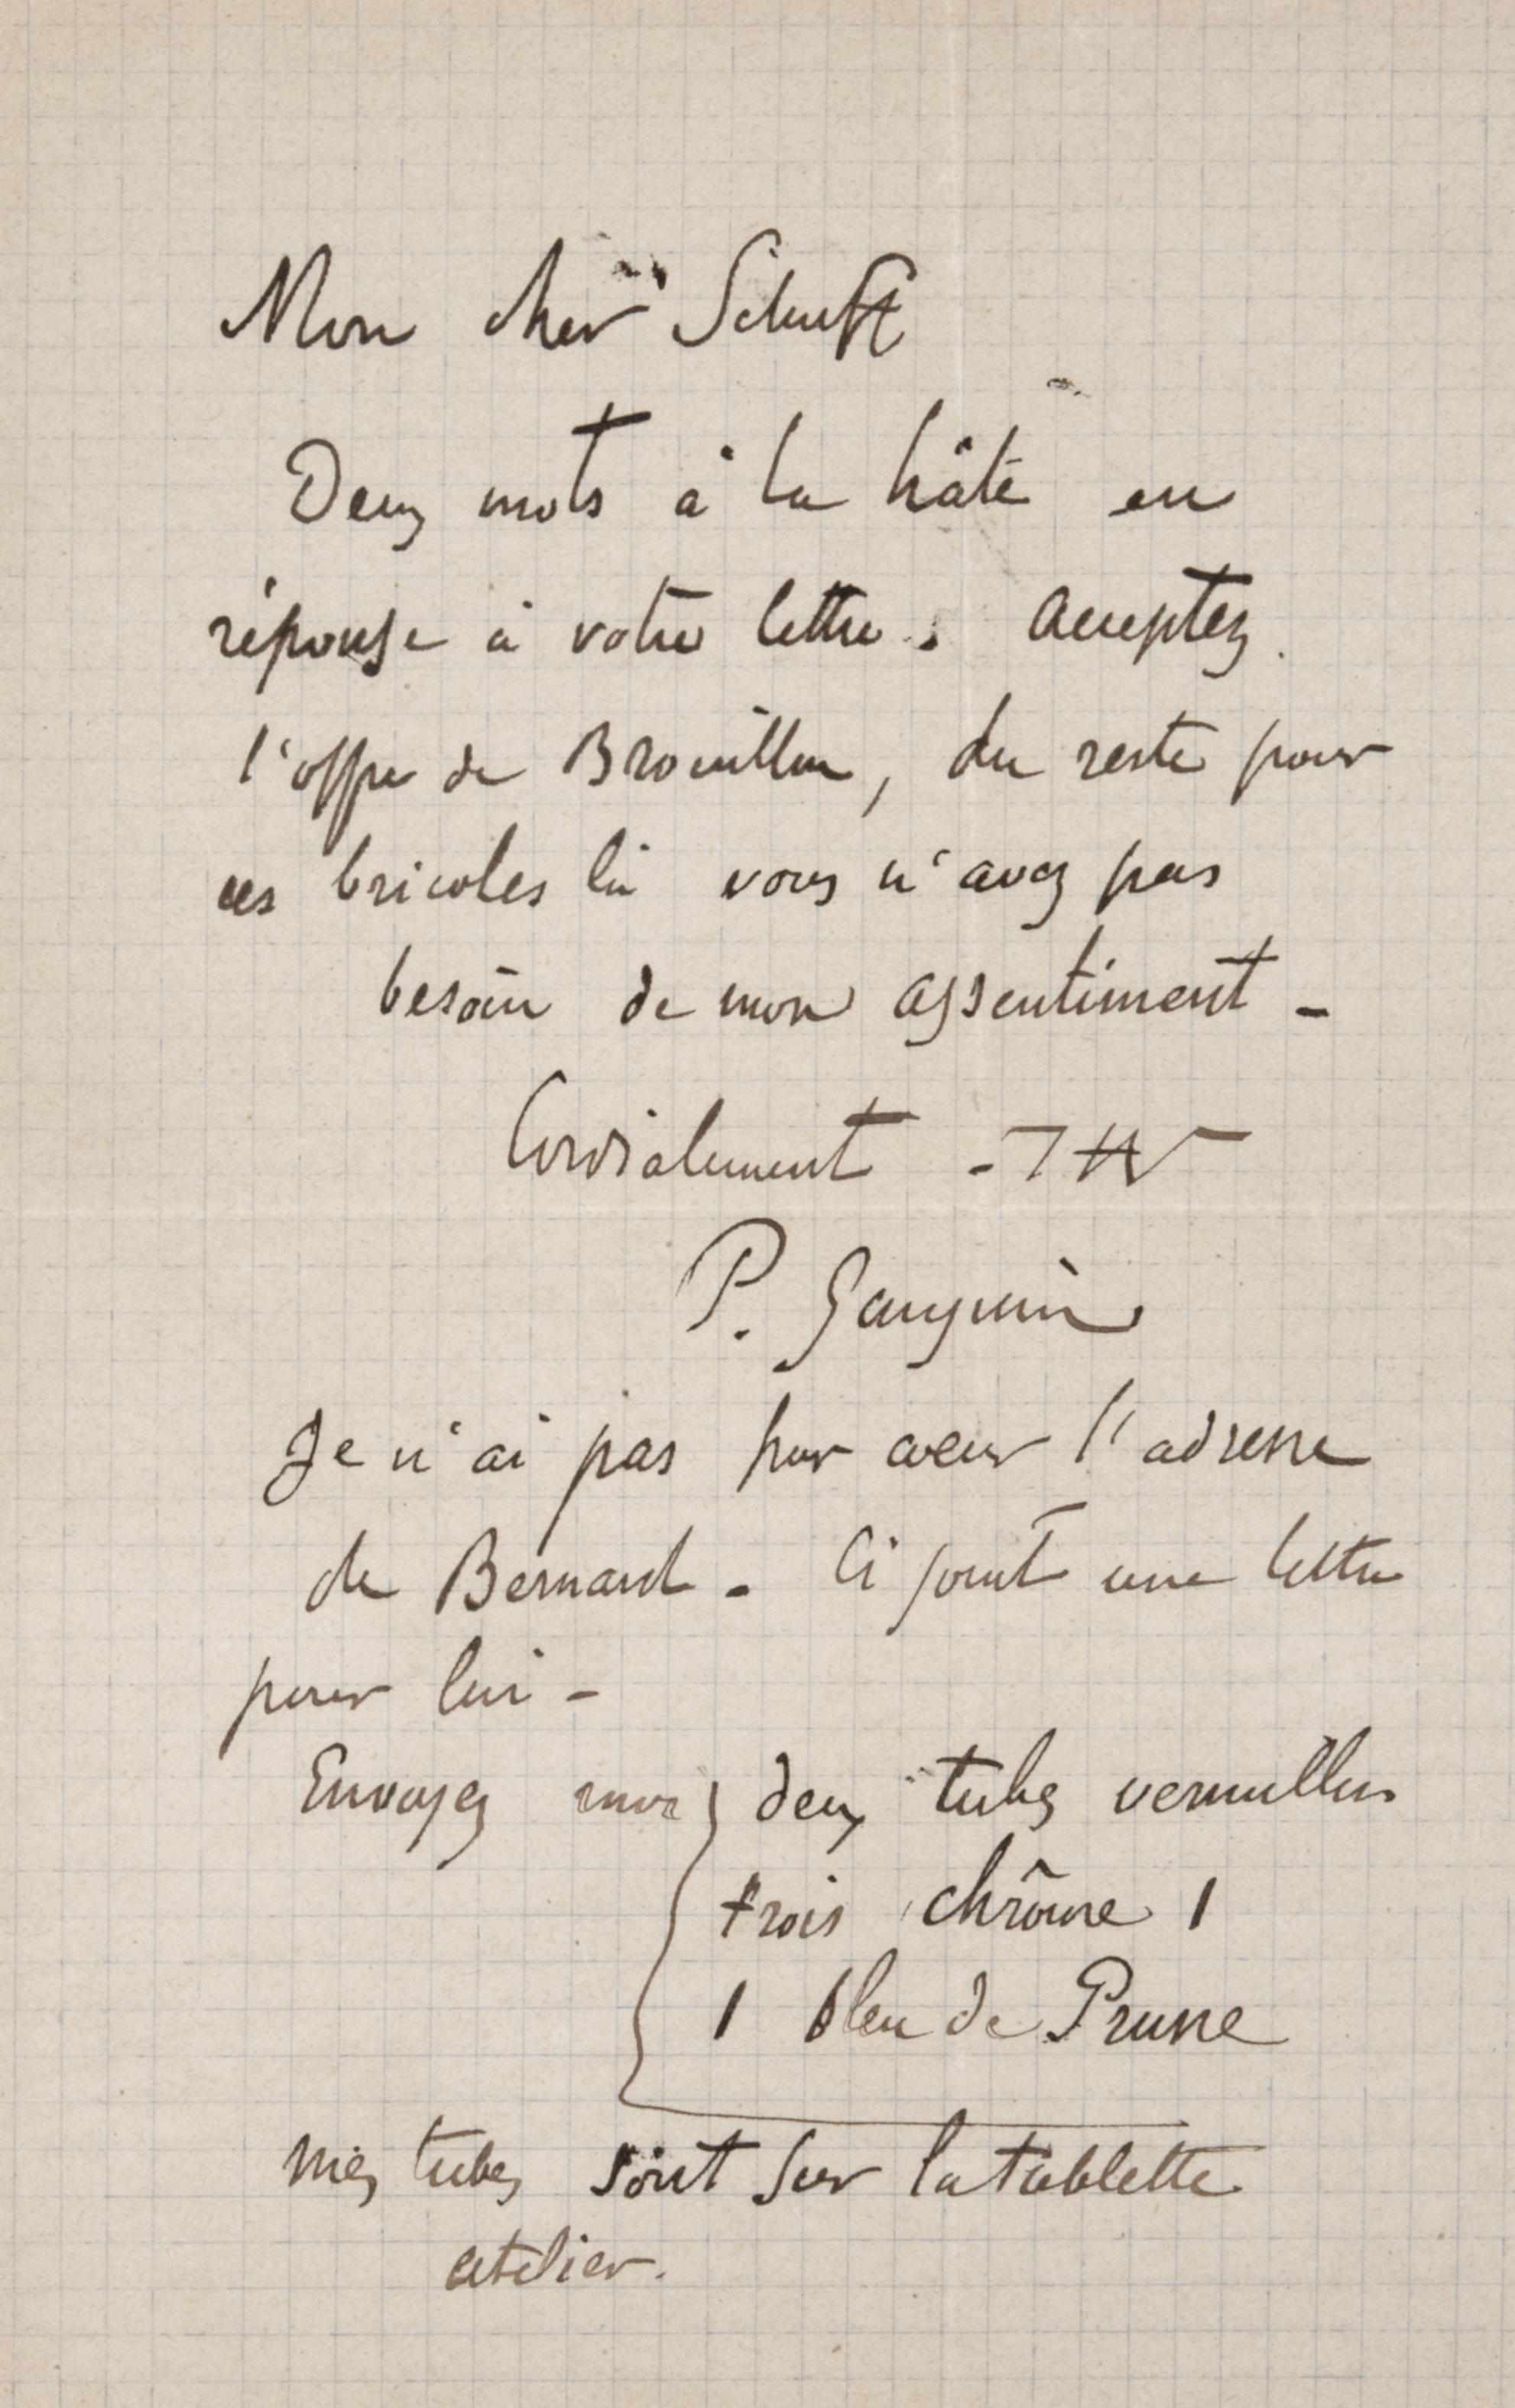 Mon cher Schuff
Deux mots à la hâte en
réponse à votre lettre. Acceptez
l'offre de Brouillon, du reste pour
ces bricoles là vous n'avez pas
besoin de mon assentiment -
Cordialement -
P. Gauguin
Je n'ai pas par cœur l'adresse
de Bernard - Ci joint une lettre
pour lui -
Envoyez moi } deux tubes vermillon
trois chrôme 1
1 bleu de Prusse
Mes tubes sont sur la tablette
atelier.